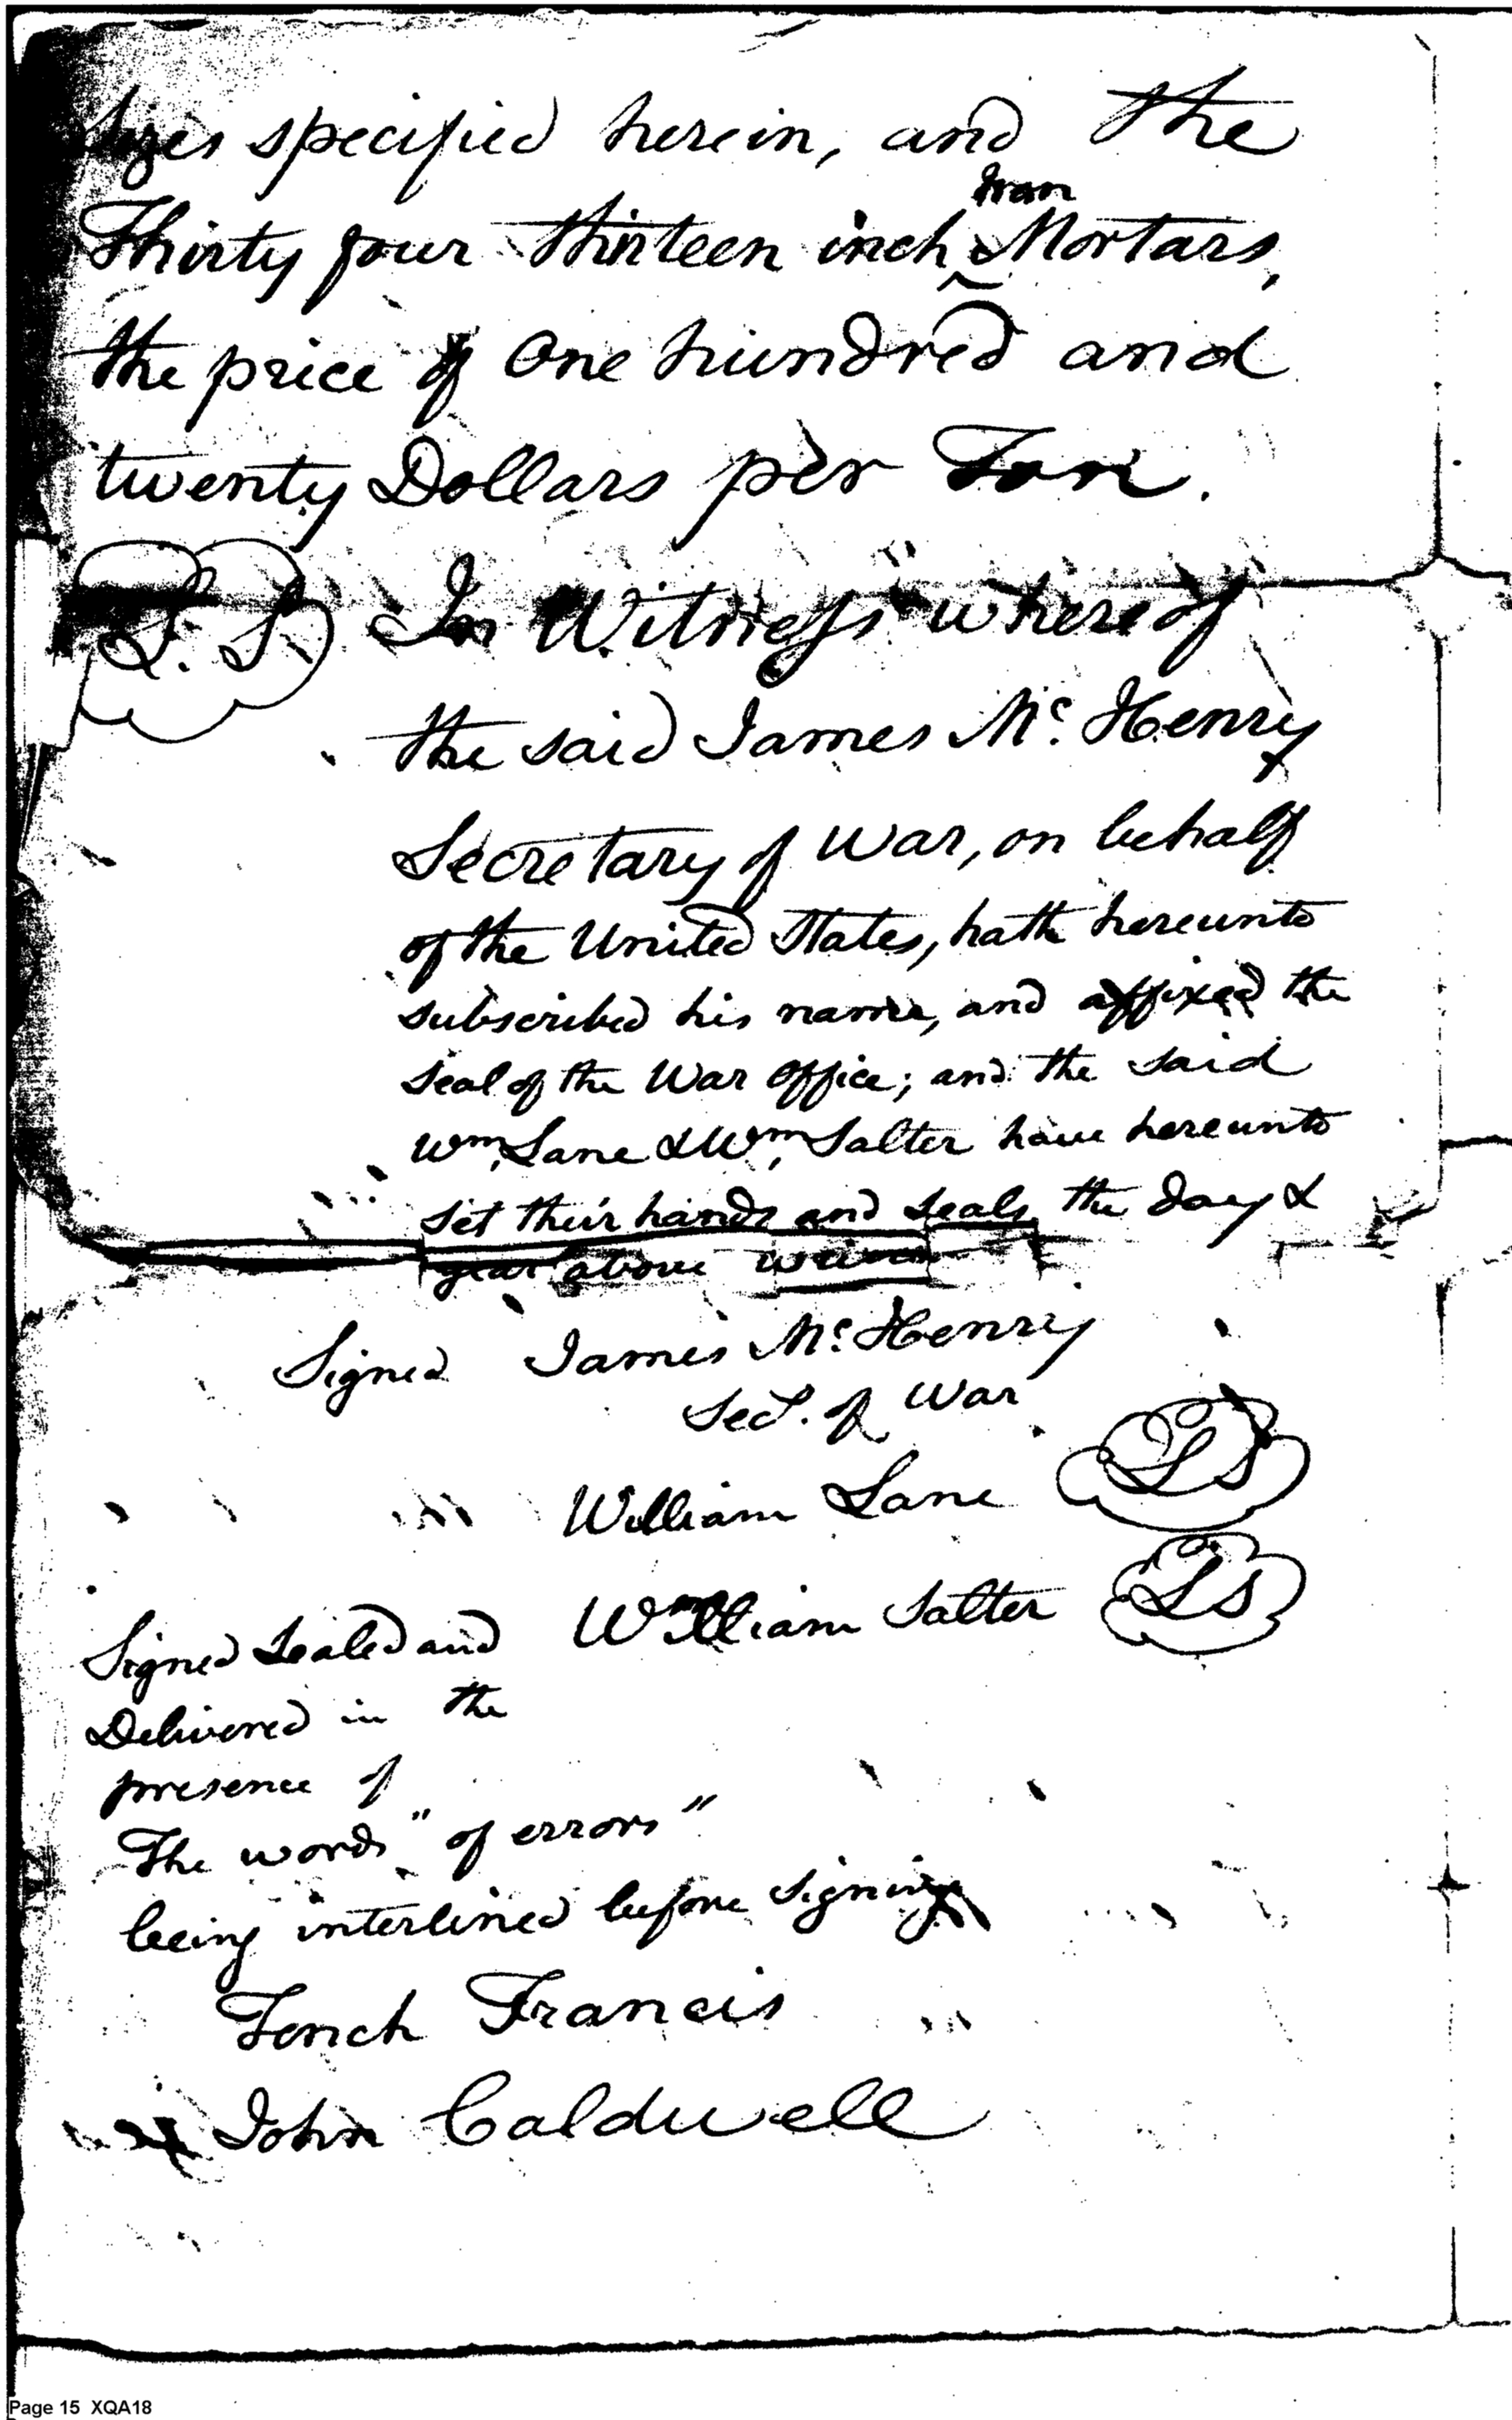 sizes specified herein, and the
Iron
Thirty four thirteen inch Mortars,
the price of One hundred and
twenty Dollars per Ton.
L. S. In Witness whereof
the said James Mc. Henry
Secretary of War, on behalf
of the United States, hath hereunto
subscribed his name, and affixed the
seal of the War Office; and the said
Wm. Lane & Wm. Salter have hereunto
set their hands and seals the day &
year above
Signed James Mc. Henry
Secy. of War
William Lane LS
William Salter LS
Signed Sealed and
Delivered in the
presence of
The words "of errors"
being interlined before signing
Tench Francis
John Caldwell
Page 15 XQA18